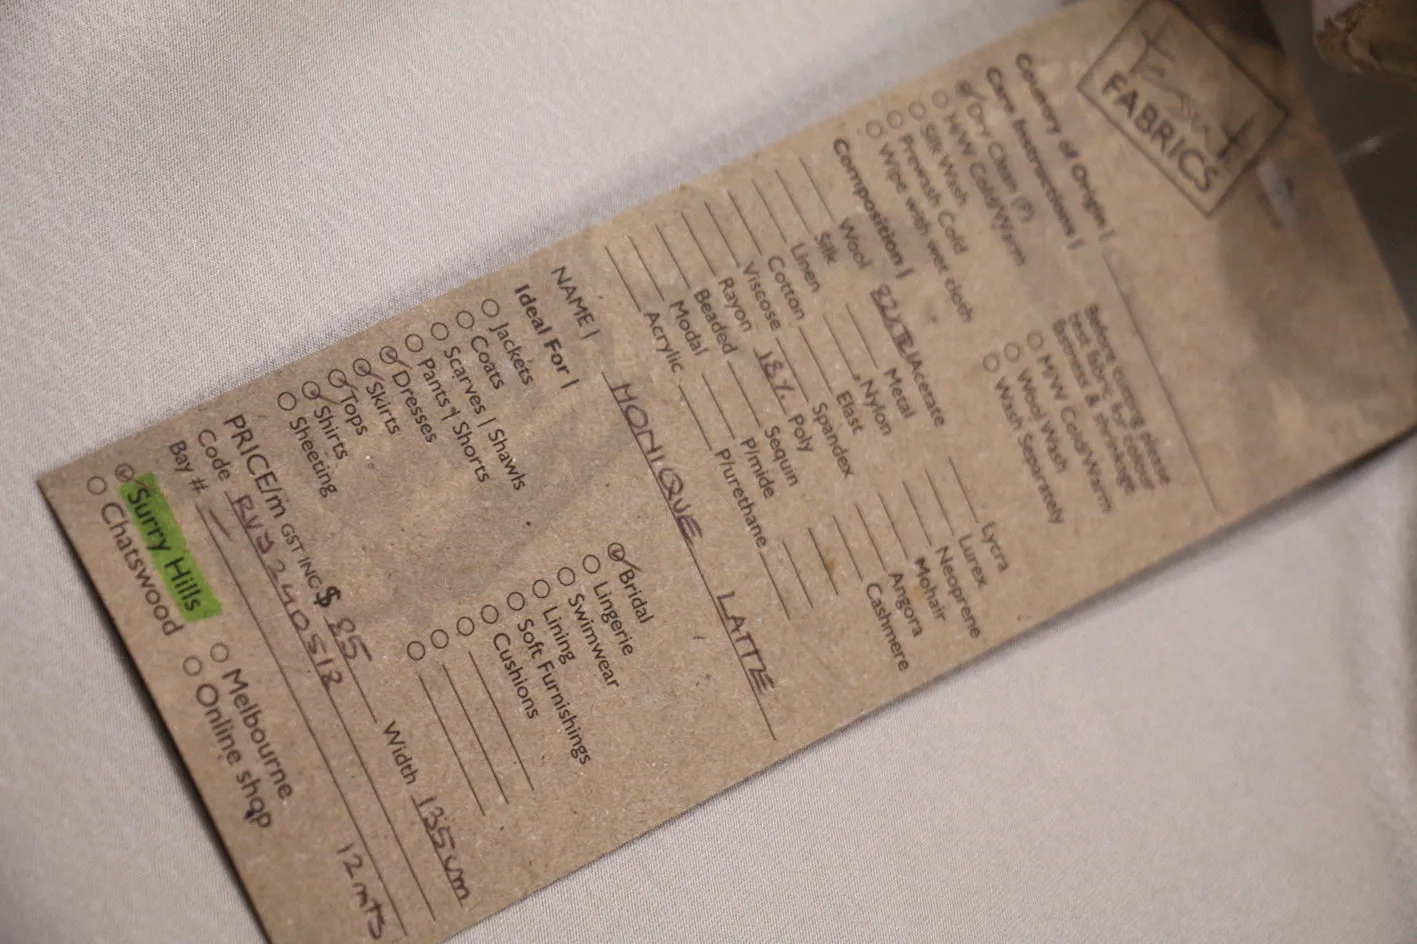 FABRICS
Country of Origin |
Care Instructions |
Dry Clean (P)
H/W Cold/Warm
Silk Wash
Prewash Cold
Wipe with wet cloth
Before cutting please
test fabric for colour
fastness & shrinkage
M/W Cold/Warm
Wool Wash
Wash Separately
Composition |
Wool
Silk
Linen
Cotton
Viscose
Rayon
Beaded
Modal
Acrylic
82% TRI Acetate
Metal
Nylon
Elast
Spandex
18% Poly
Sequin
P/mide
P/urethane
Lycra
Lurex
Neoprene
Mohair
Angora
Cashmere
NAME | MONIQUE LATTE
Ideal For |
Jackets
Coats
Scarves | Shawls
Pants | Shorts
Dresses
Skirts
Tops
Shirts
Sheeting
Bridal
Lingerie
Swimwear
Lining
Soft Furnishings
Cushions
PRICE/m GST INC. $ 85 Width 135cm
Code RVJ240512
Bay # 12 mts
Surry Hills
Chatswood
Melbourne
Online shop